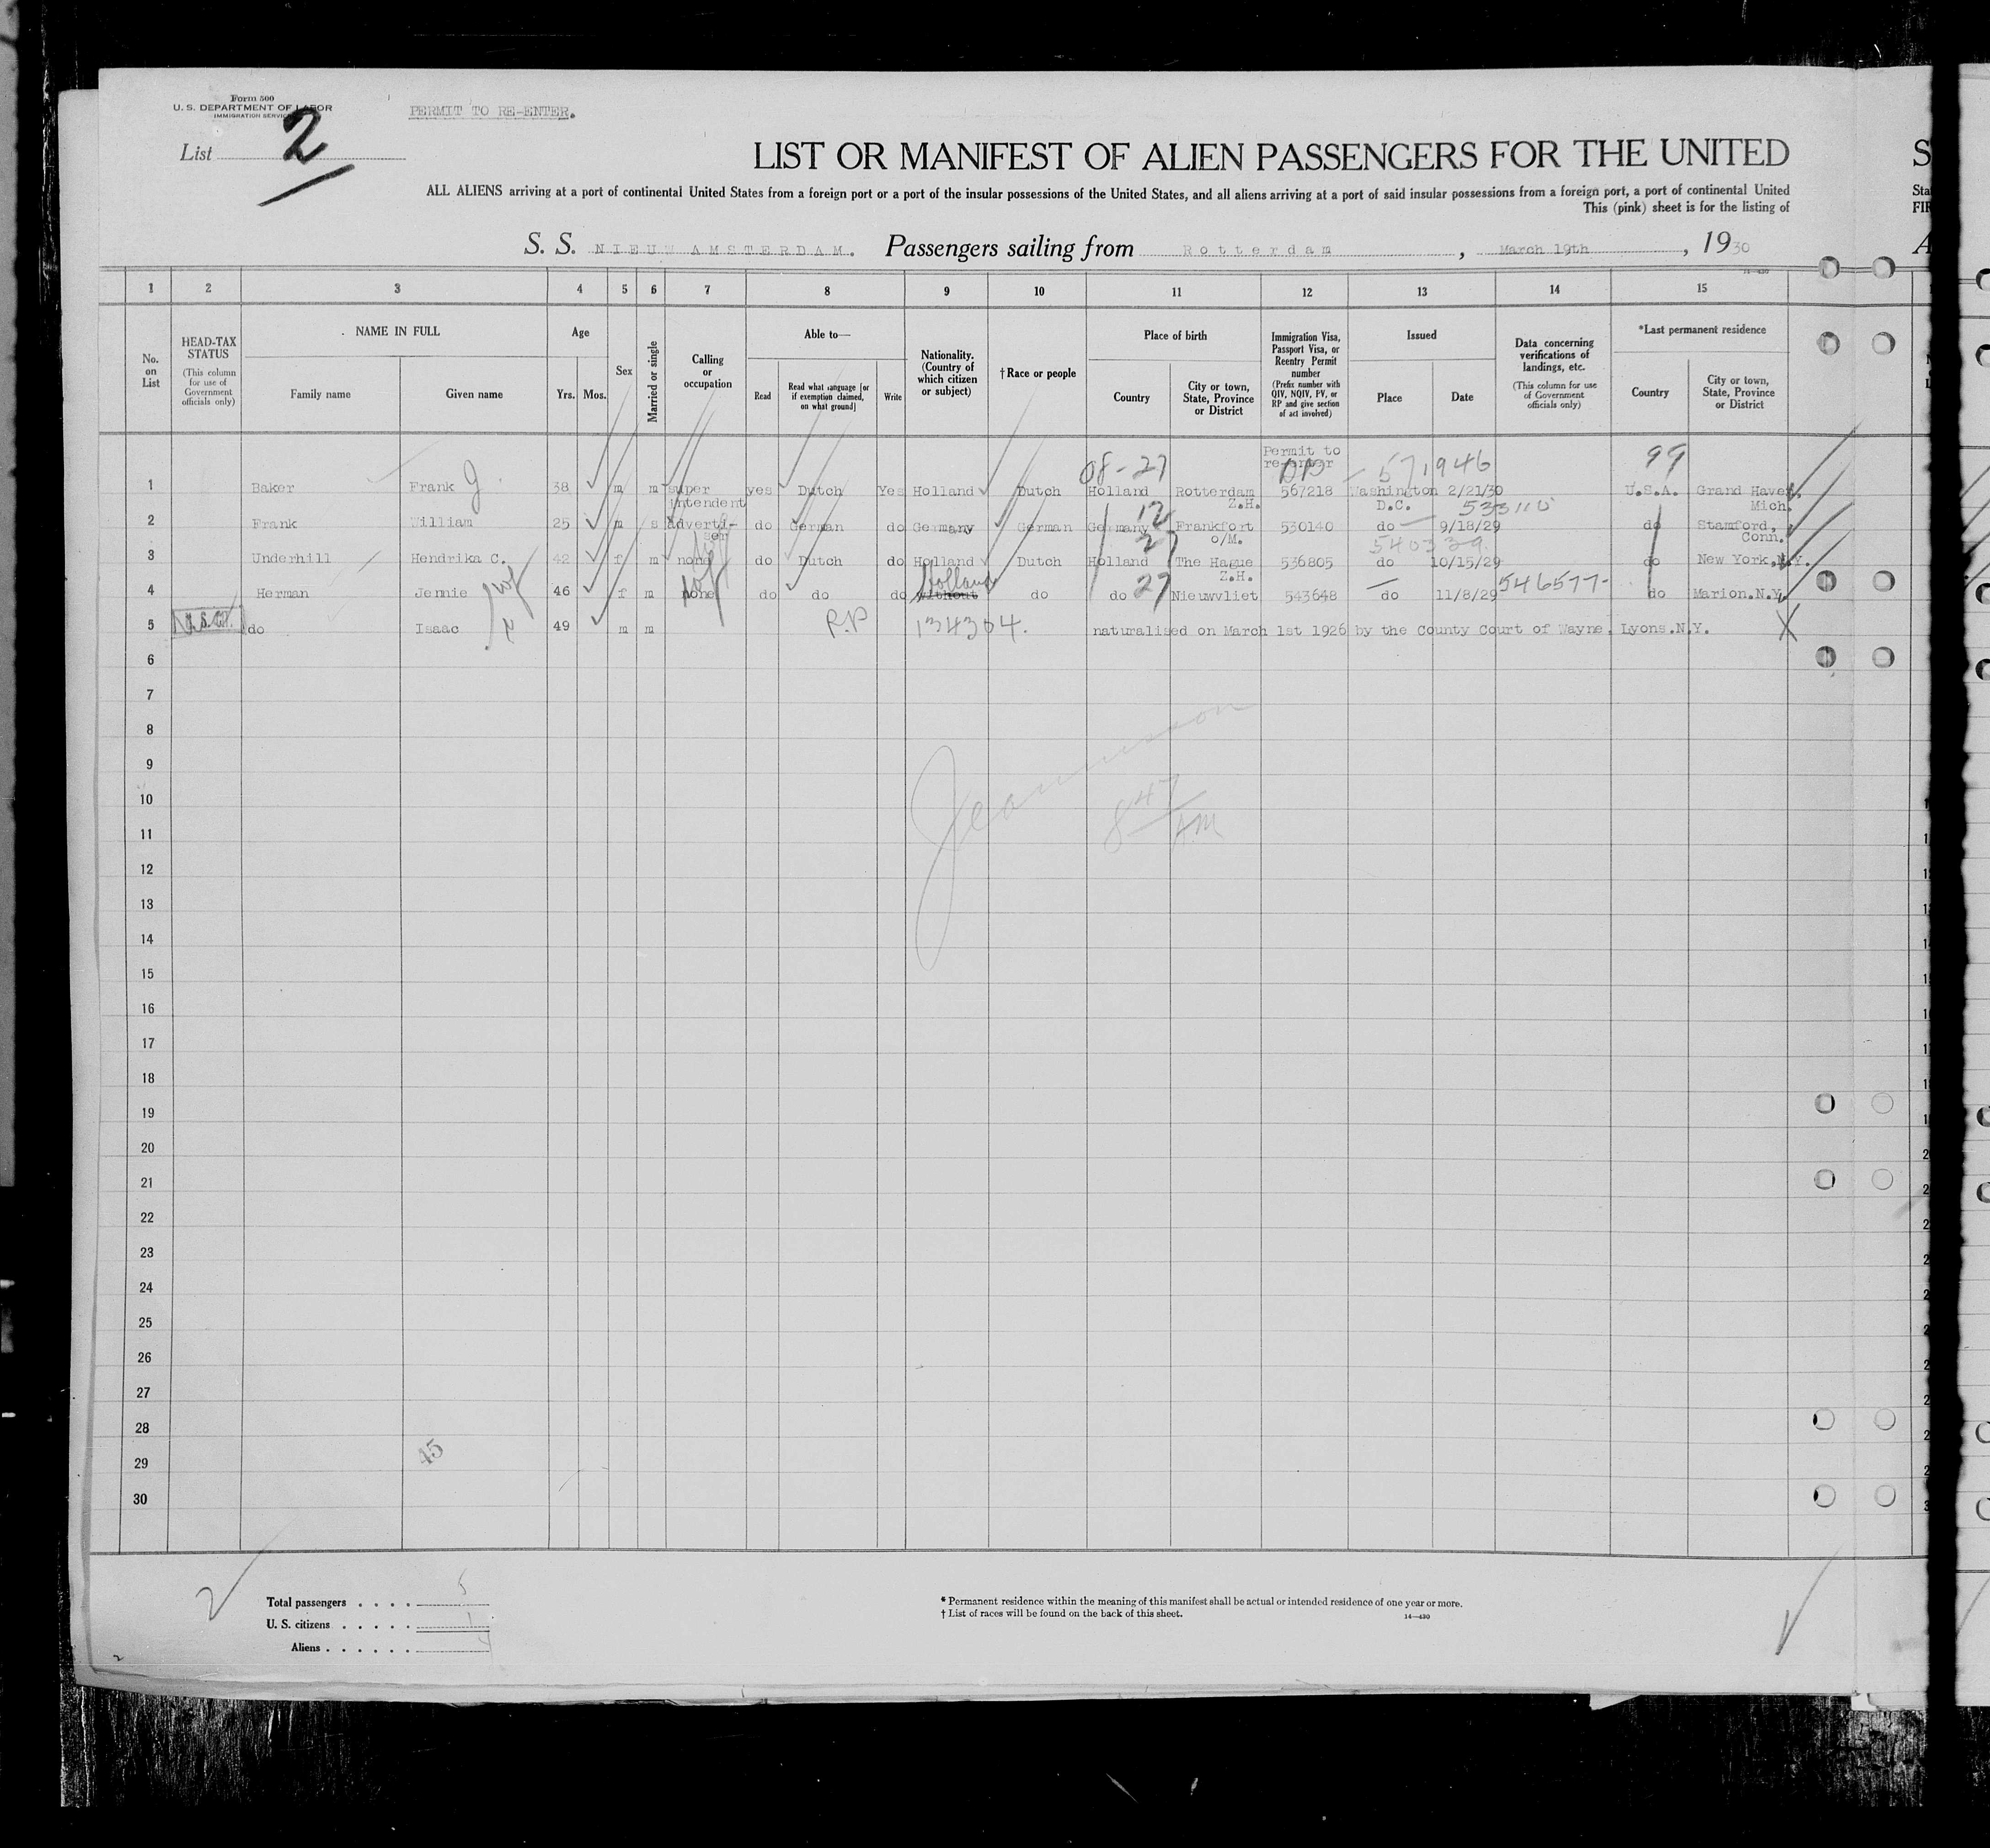 Form 500
U. S. DEPARTMENT OF LABOR
IMMIGRATION SERVICE
PERMIT TO RE-ENTER.
List 2
LIST OR MANIFEST OF ALIEN PASSENGERS FOR THE UNITED
ALL ALIENS arriving at a port of continental United States from a foreign port or a port of the insular possessions of the United States, and all aliens arriving at a port of said insular possessions from a foreign port, a port of continental United
This (pink) sheet is for the listing of
S. S. NIEUW AMSTERDAM. Passengers sailing from Rotterdam , March 19th , 1930
1 2 3 4 5 6 7 8 9 10 11 12 13 14 15
No. on List
HEAD-TAX STATUS (This column for use of Government officials only)
NAME IN FULL
Family name Given name
Age
Yrs. Mos.
Sex
Married or single
Calling or occupation
Able to—
Read
Read what language [or if exemption claimed, on what ground]
Write
Nationality. (Country of which citizen or subject)
†Race or people
Place of birth
Country
City or town, State, Province or District
Immigration Visa, Passport Visa, or Reentry Permit number (Prefix number with QIV, NQIV, PV, or RP and give section of act involved)
Issued
Place Date
Data concerning verifications of landings, etc. (This column for use of Government officials only)
*Last permanent residence
Country
City or town, State, Province or District
Permit to
re-enter
08-27 571946 99
1 Baker Frank J. 38 m m super yes Dutch Yes Holland Dutch Holland Rotterdam 567218 Washington 2/21/30 U.S.A. Grand Haven.
intendent Z.H. D.C. 533110 Mich.
2 Frank William 25 m s adverti- do German do Germany German Germany 12 Frankfort 530140 do 9/18/29 do Stamford,
ser o/M. 540339 Conn.
3 Underhill Hendrika C. 42 f m none do Dutch do Holland Dutch Holland 27 The Hague 536805 do 10/15/29 do New York.N.Y.
Holland Z.H.
4 Herman Jennie wf 46 f m none do do do without do do 27 Nieuwvliet 543648 do 11/8/29 546577- do Marion.N.Y.
5 do Isaac 49 m m R.P 134304. naturalised on March 1st 1926 by the County Court of Wayne, Lyons.N.Y. X
6
7
8
9
10
11
12
13
14
15
16
17
18
19
20
21
22
23
24
25
26
27
28
29
30
847 AM
45
Total passengers . . . . 5
U. S. citizens . . . . . 1
Aliens . . . . . . 4
* Permanent residence within the meaning of this manifest shall be actual or intended residence of one year or more.
† List of races will be found on the back of this sheet. 14—430